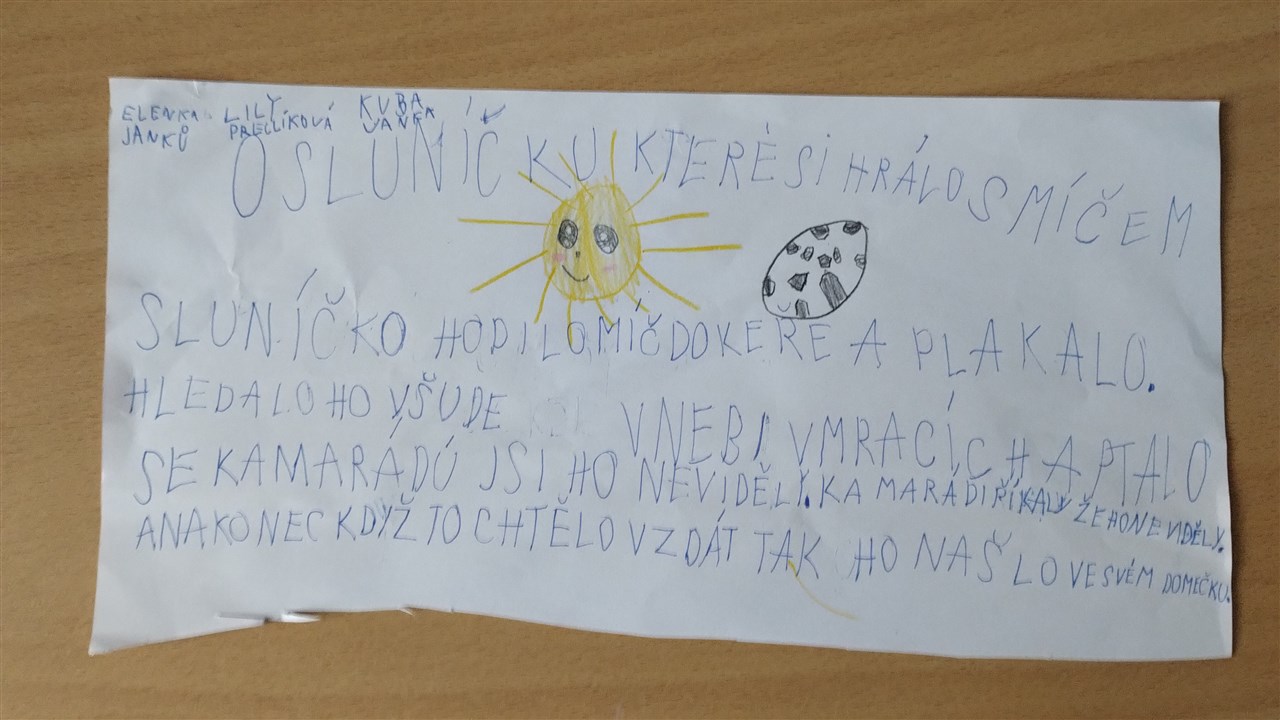 ELENKA LILY KUBA
JANKŮ PRECLÍKOVÁ VAŇKA
O SLUNÍČKU KTERÉ SI HRÁLO S MÍČEM
SLUNÍČKO HODILO MÍČ DO KEŘE A PLAKALO.
HLEDALO HO VŠUDE V NEBI V MRACÍCH A PTALO
SE KAMARÁDŮ JSI HO NEVIDĚLY. KAMARÁDI ŘÍKALY ŽE HO NEVIDĚLY.
A NAKONEC KDYŽ TO CHTĚLO VZDÁT TAK HO NAŠLO VE SVÉM DOMEČKU.